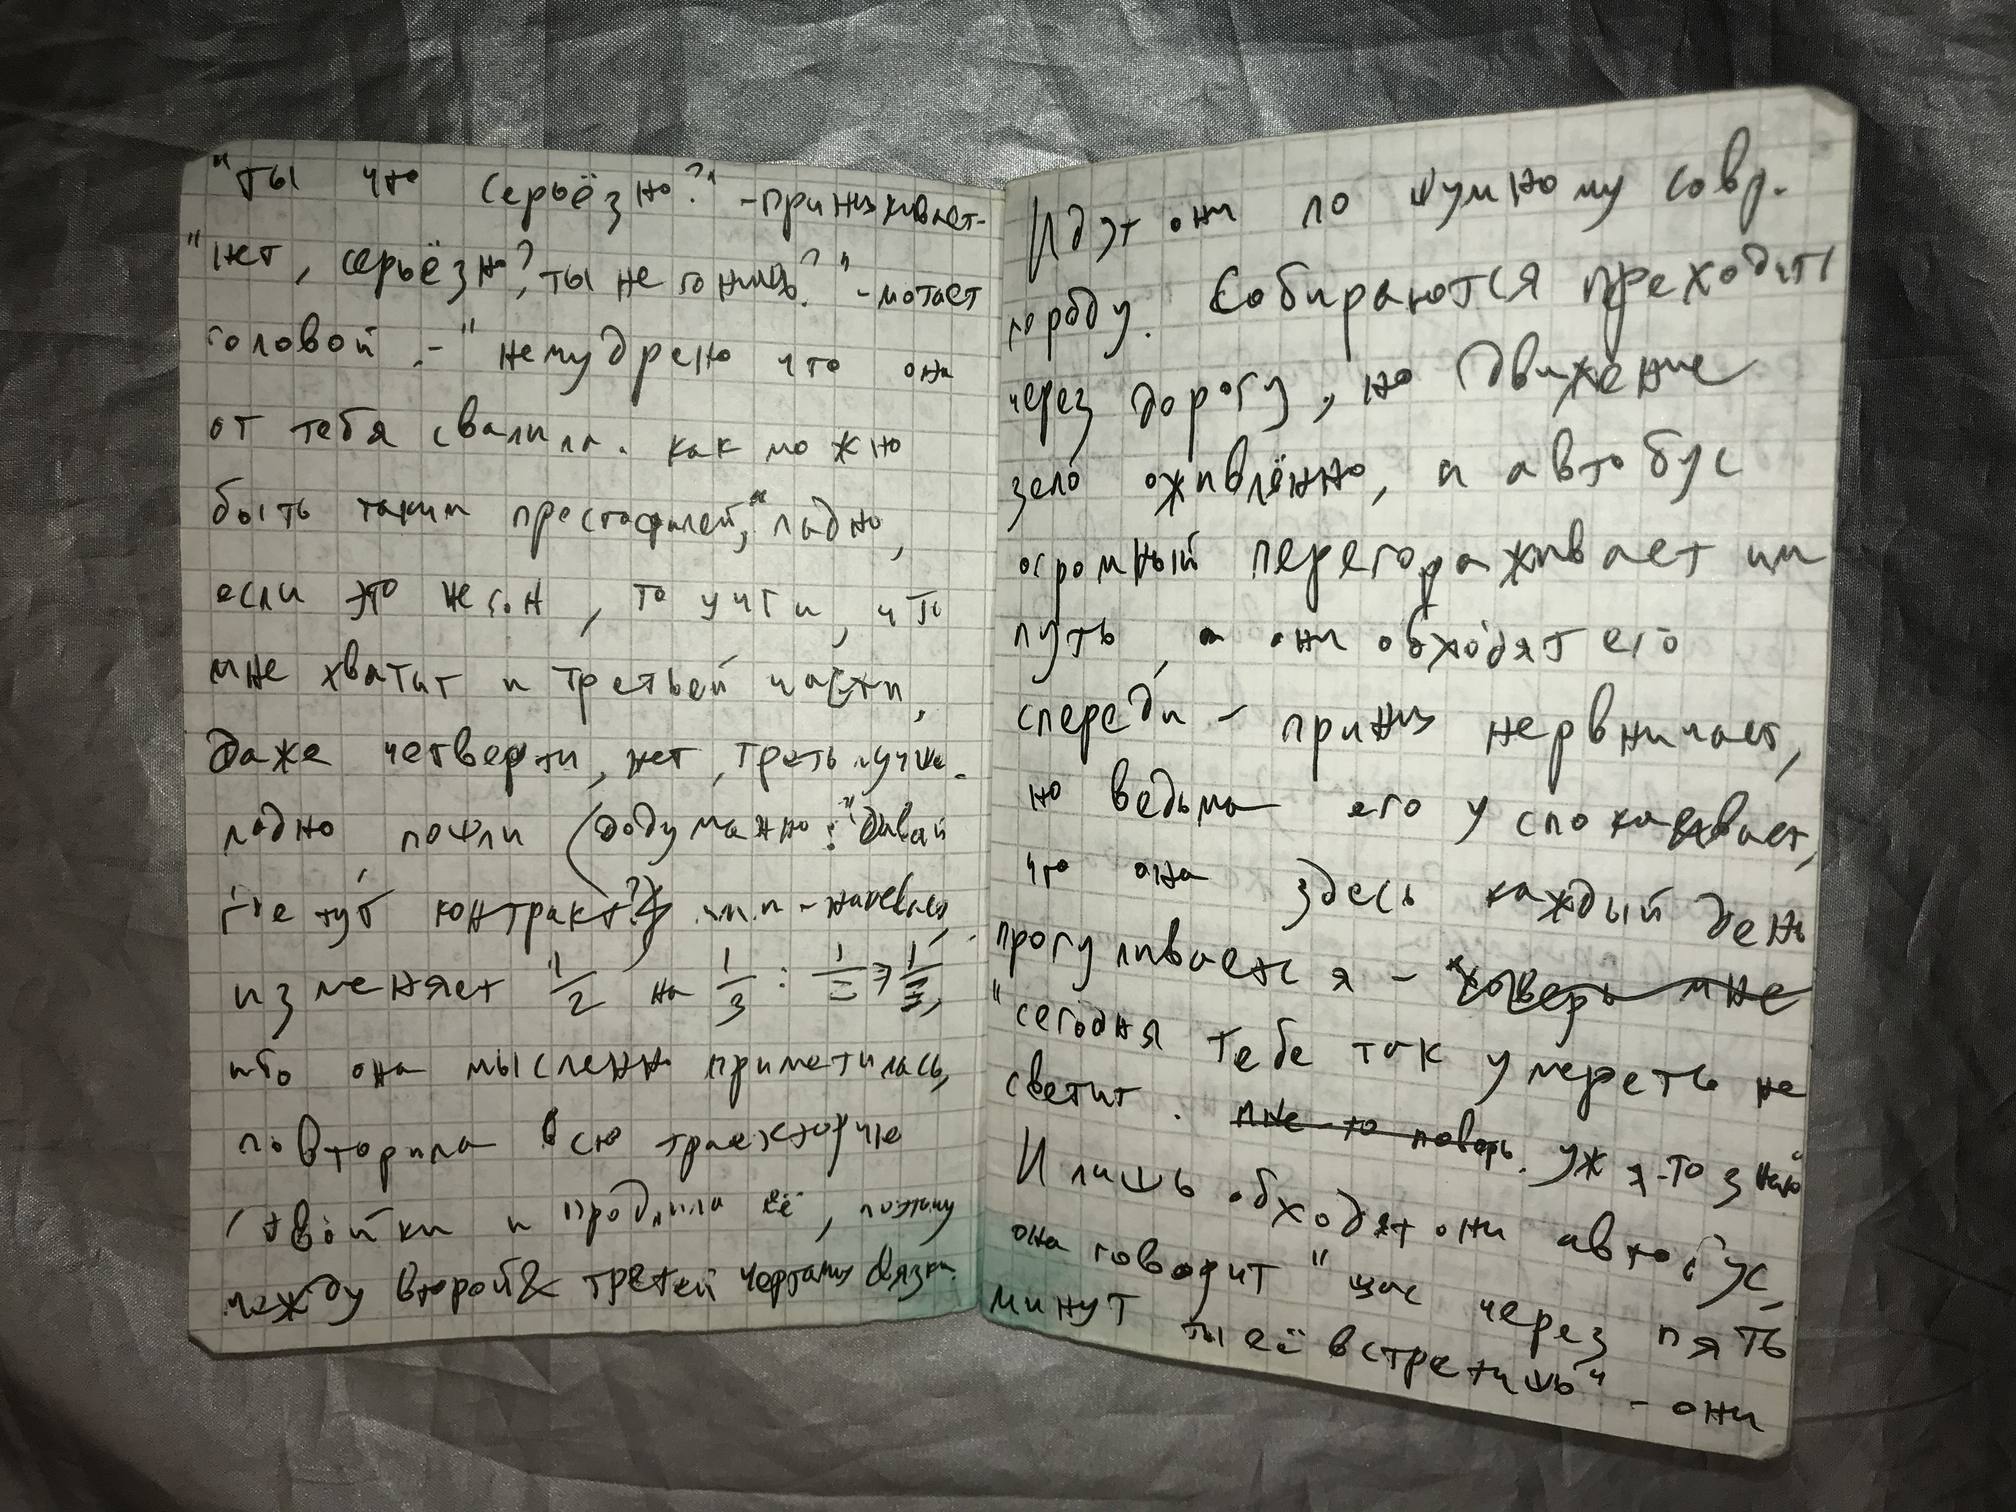 "ты что серьёзно?" -принц кивает-
"нет, серьёзно?, ты не гонишь?" - мотает
головой. - "немудрено что она
от тебя свалила. как можно
быть таким простофилей," ладно,
если это не гон, то учти, что
мне хватит и третьей части,
даже четверти, нет, треть лучше.
ладно, пошли (додумажно: "давай
где тут контракт?)
изменяет 1/2 на 1/3 :
ибо она мысленно приметилась,
повторила всю траекторию
двойки и продлила её, поэтому
между второй & третьей чертами связки.
Идут они по шумному совр.
городу. Собираются преходить
через дорогу, но движение
зело оживлённо, и автобус
огромный перегораживает им
путь, а они обходят его
спереди - принц нервничает,
но ведьма его успокаивает,
что она здесь каждый день
прогуливается - "поверь мне
"сегодня тебе так умереть не
светит. мне-то поверь. уж я-то знаю"
И лишь обходят они автобус,
она говорит "щас через пять
минут ты её встретишь" - они